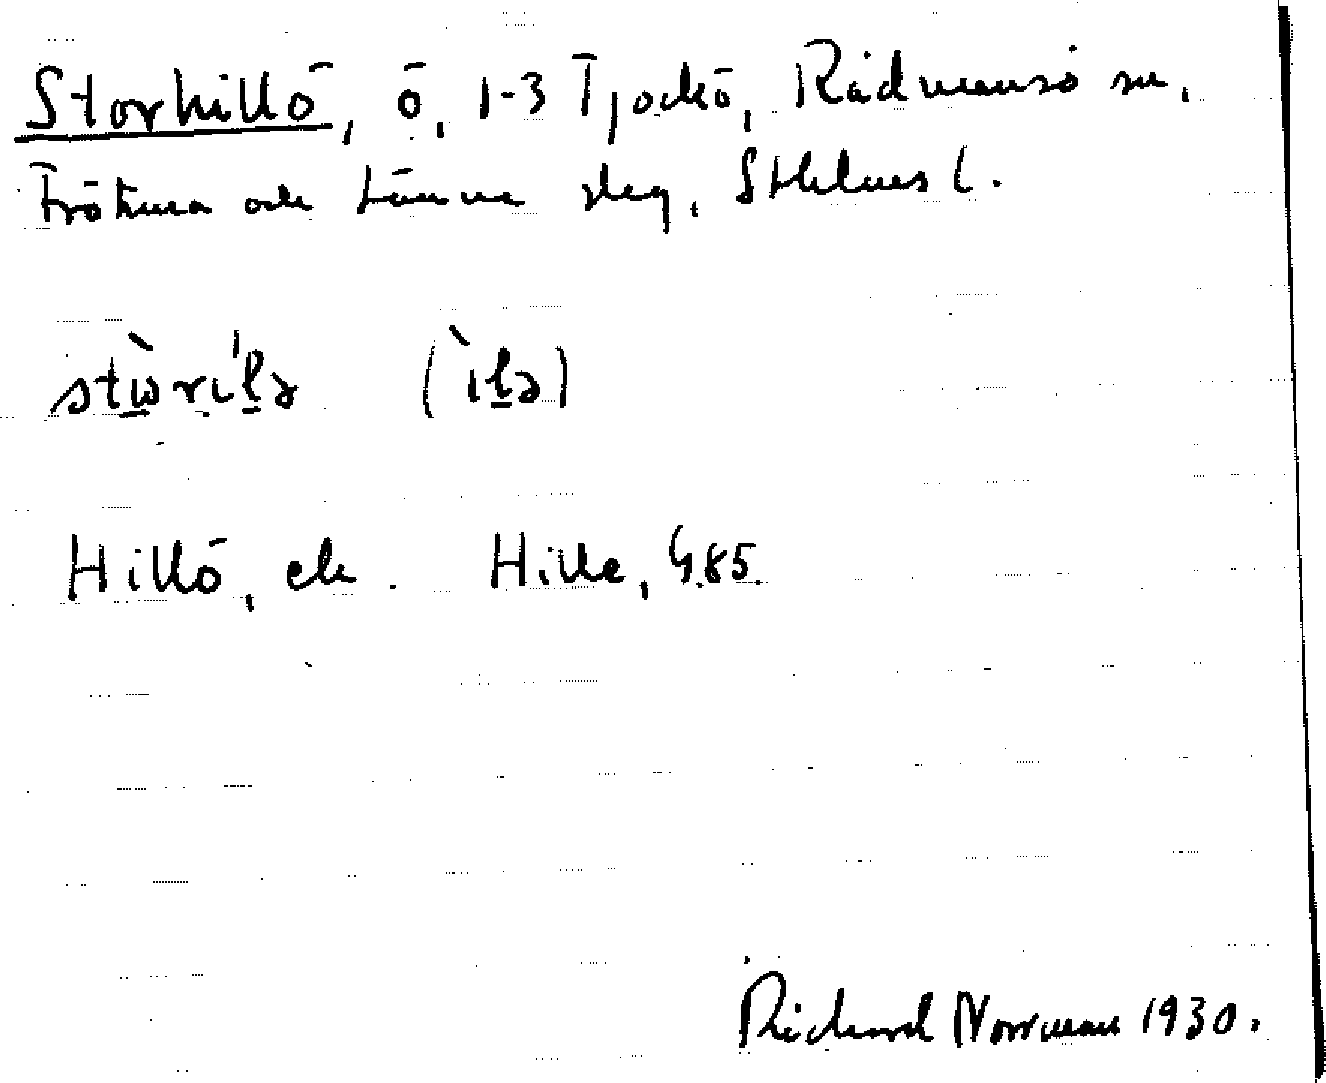 Storhillö, ö, 1-3 Tjockö, Rådmansö sn,
Frötuna och Länna slg, Sthlms l.
stωrılə (ılə)
Hillö, ek. Hille, G.85
Richard Norrman 1930.